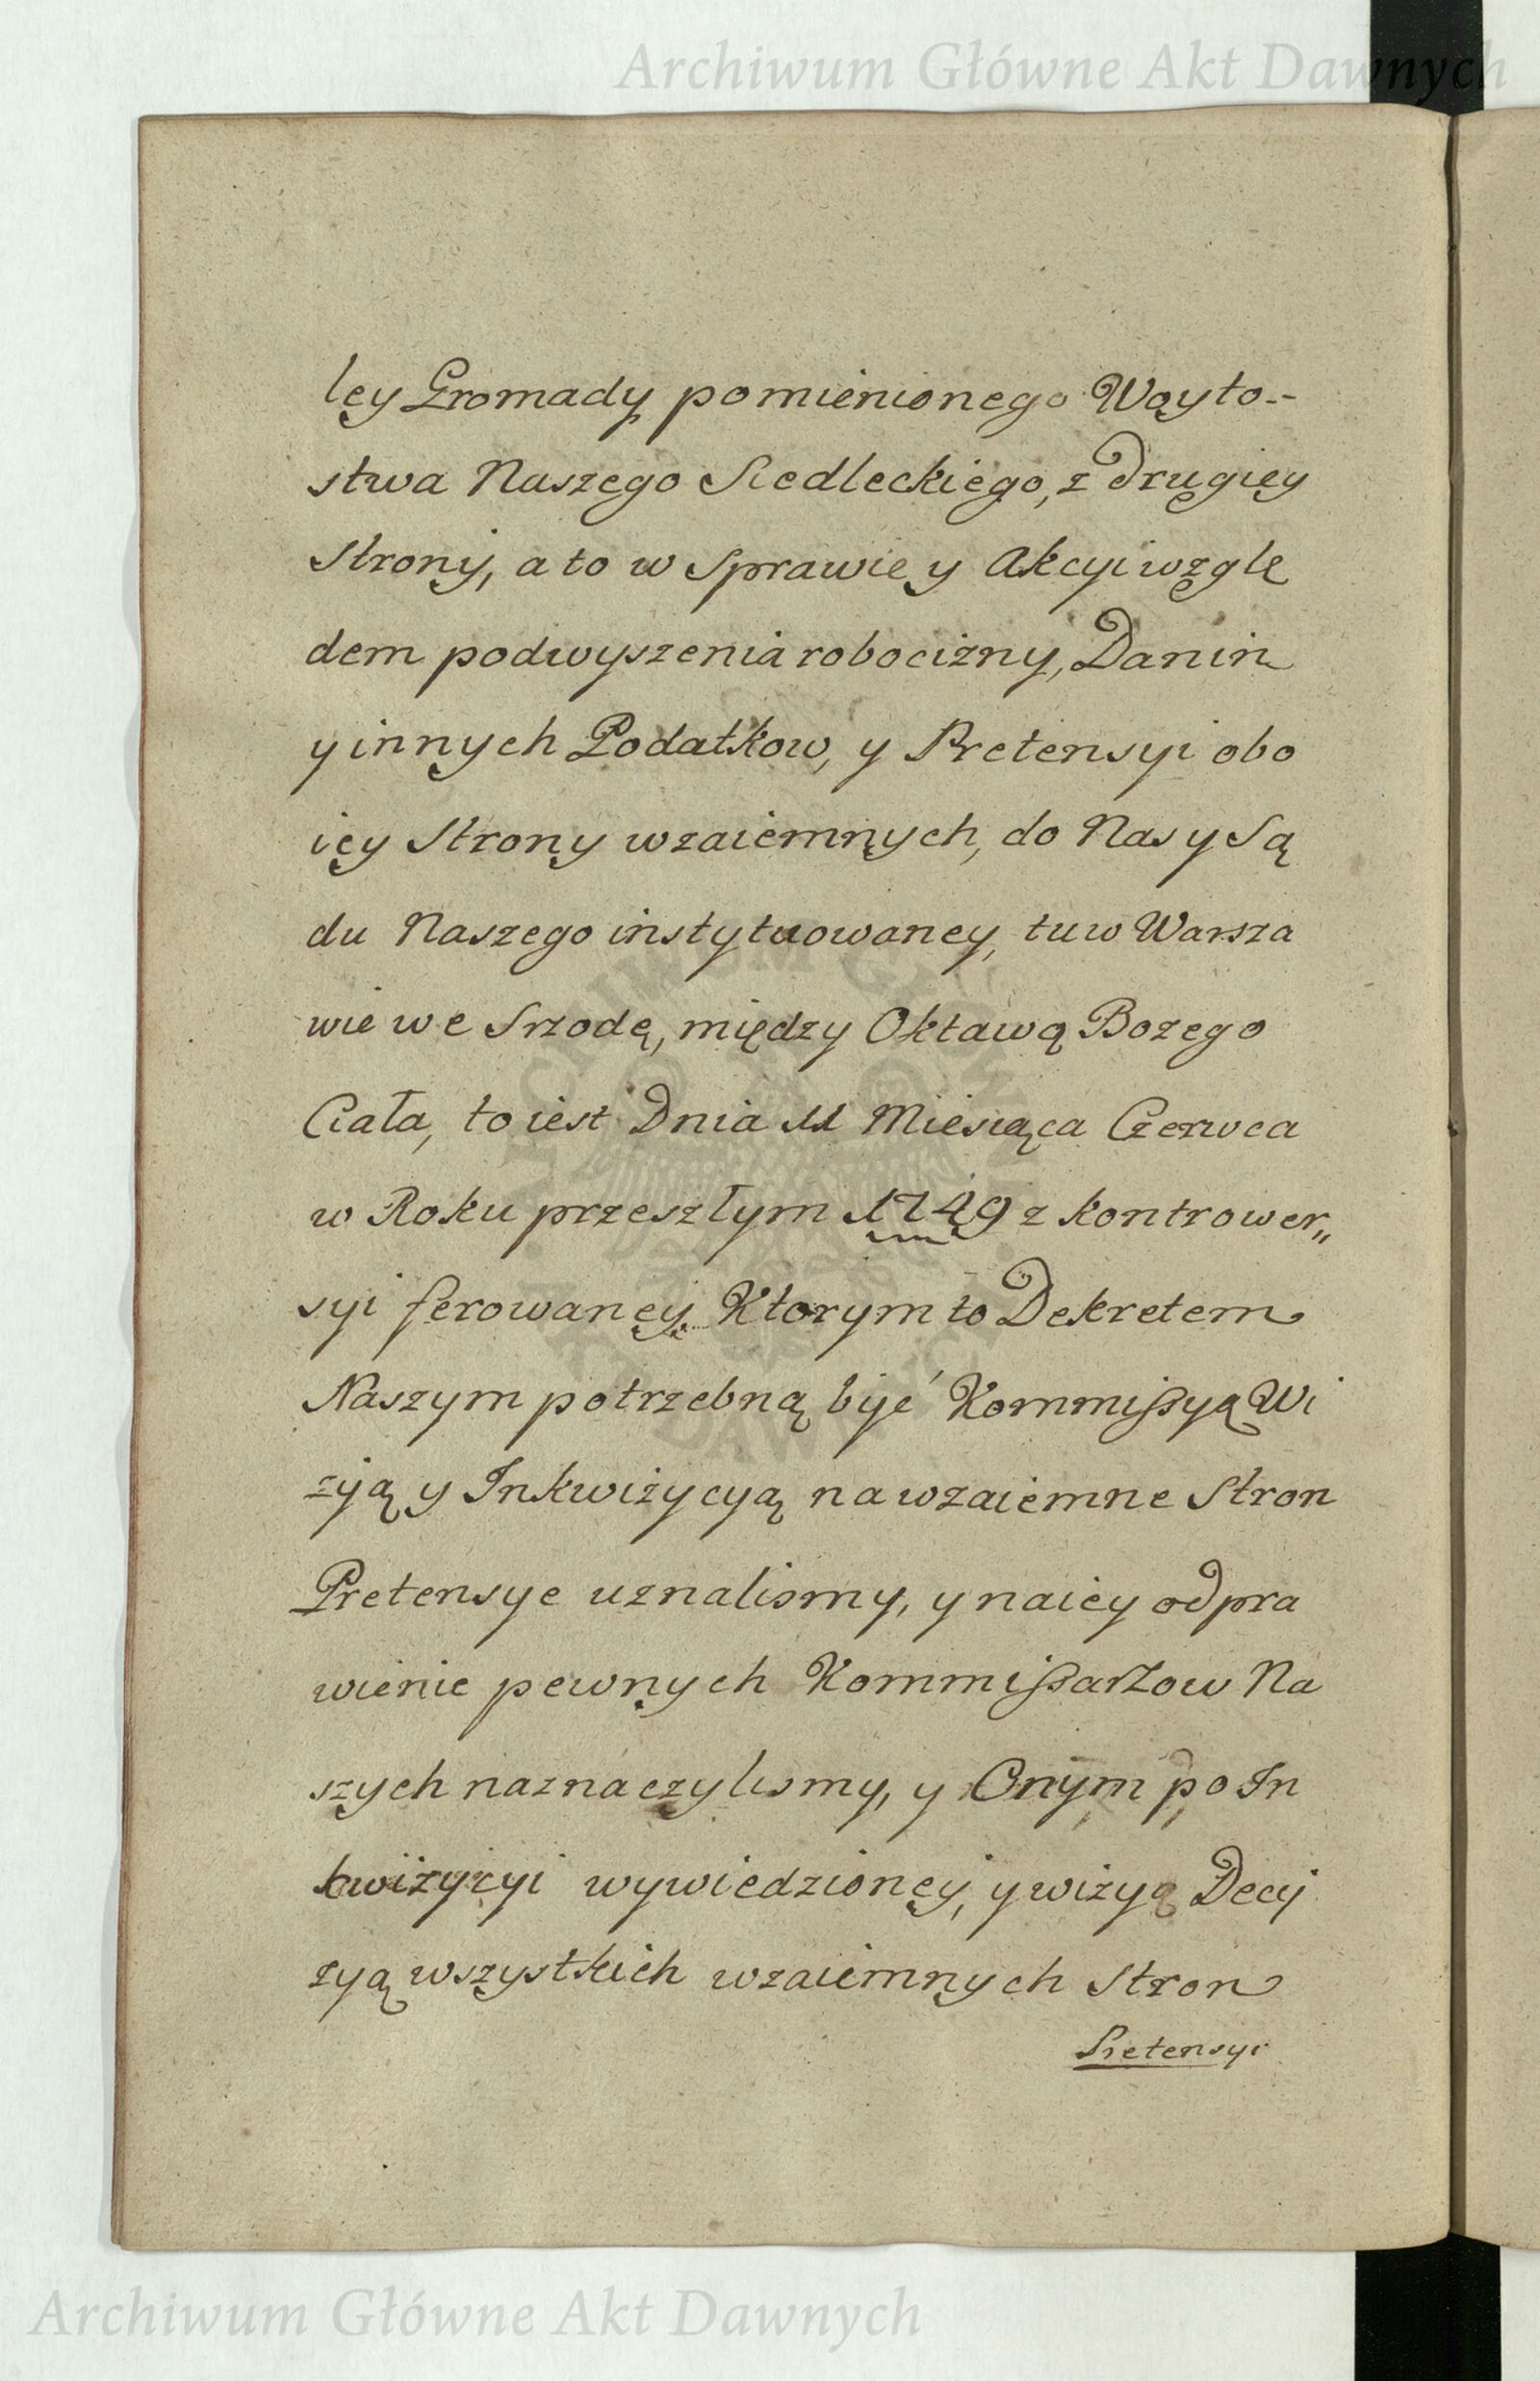 Archiwum Główne Akt Dawnych
ley Gromady pomienionego Woyto--
stwa Naszego Siedleckiego, z drugiey
Strony, a to w Sprawie y Akcyi wzglę
dem podwyszenia robocizny, Danin
y innych Podatkow, y Pretensyi obo
iey Strony wzaiemnych, do Nas y Są
du Naszego instytuowaney, tu w Warsza
wie we Srzodę, między Oktawą Bozego
Ciała, to iest Dnia 11 Miesiąca Czerwca
w Roku przeszłym 1749 z kontrower„
syi ferowaney. Ktorym to Dekretem
Naszym potrzebną być Kommißyą Wi
zyą y Inkwizycyą na wzaiemne Stron
Pretensye uznalismy, y na iey odpra
wienie pewnych Kommißarzow Na
szych naznaczylismy, y Onym po In
kwizycyi wywiedzioney, y wizyą Decy
zyą wszystkich wzaiemnych Stron
Pretensyi
Archiwum Główne Akt Dawnych